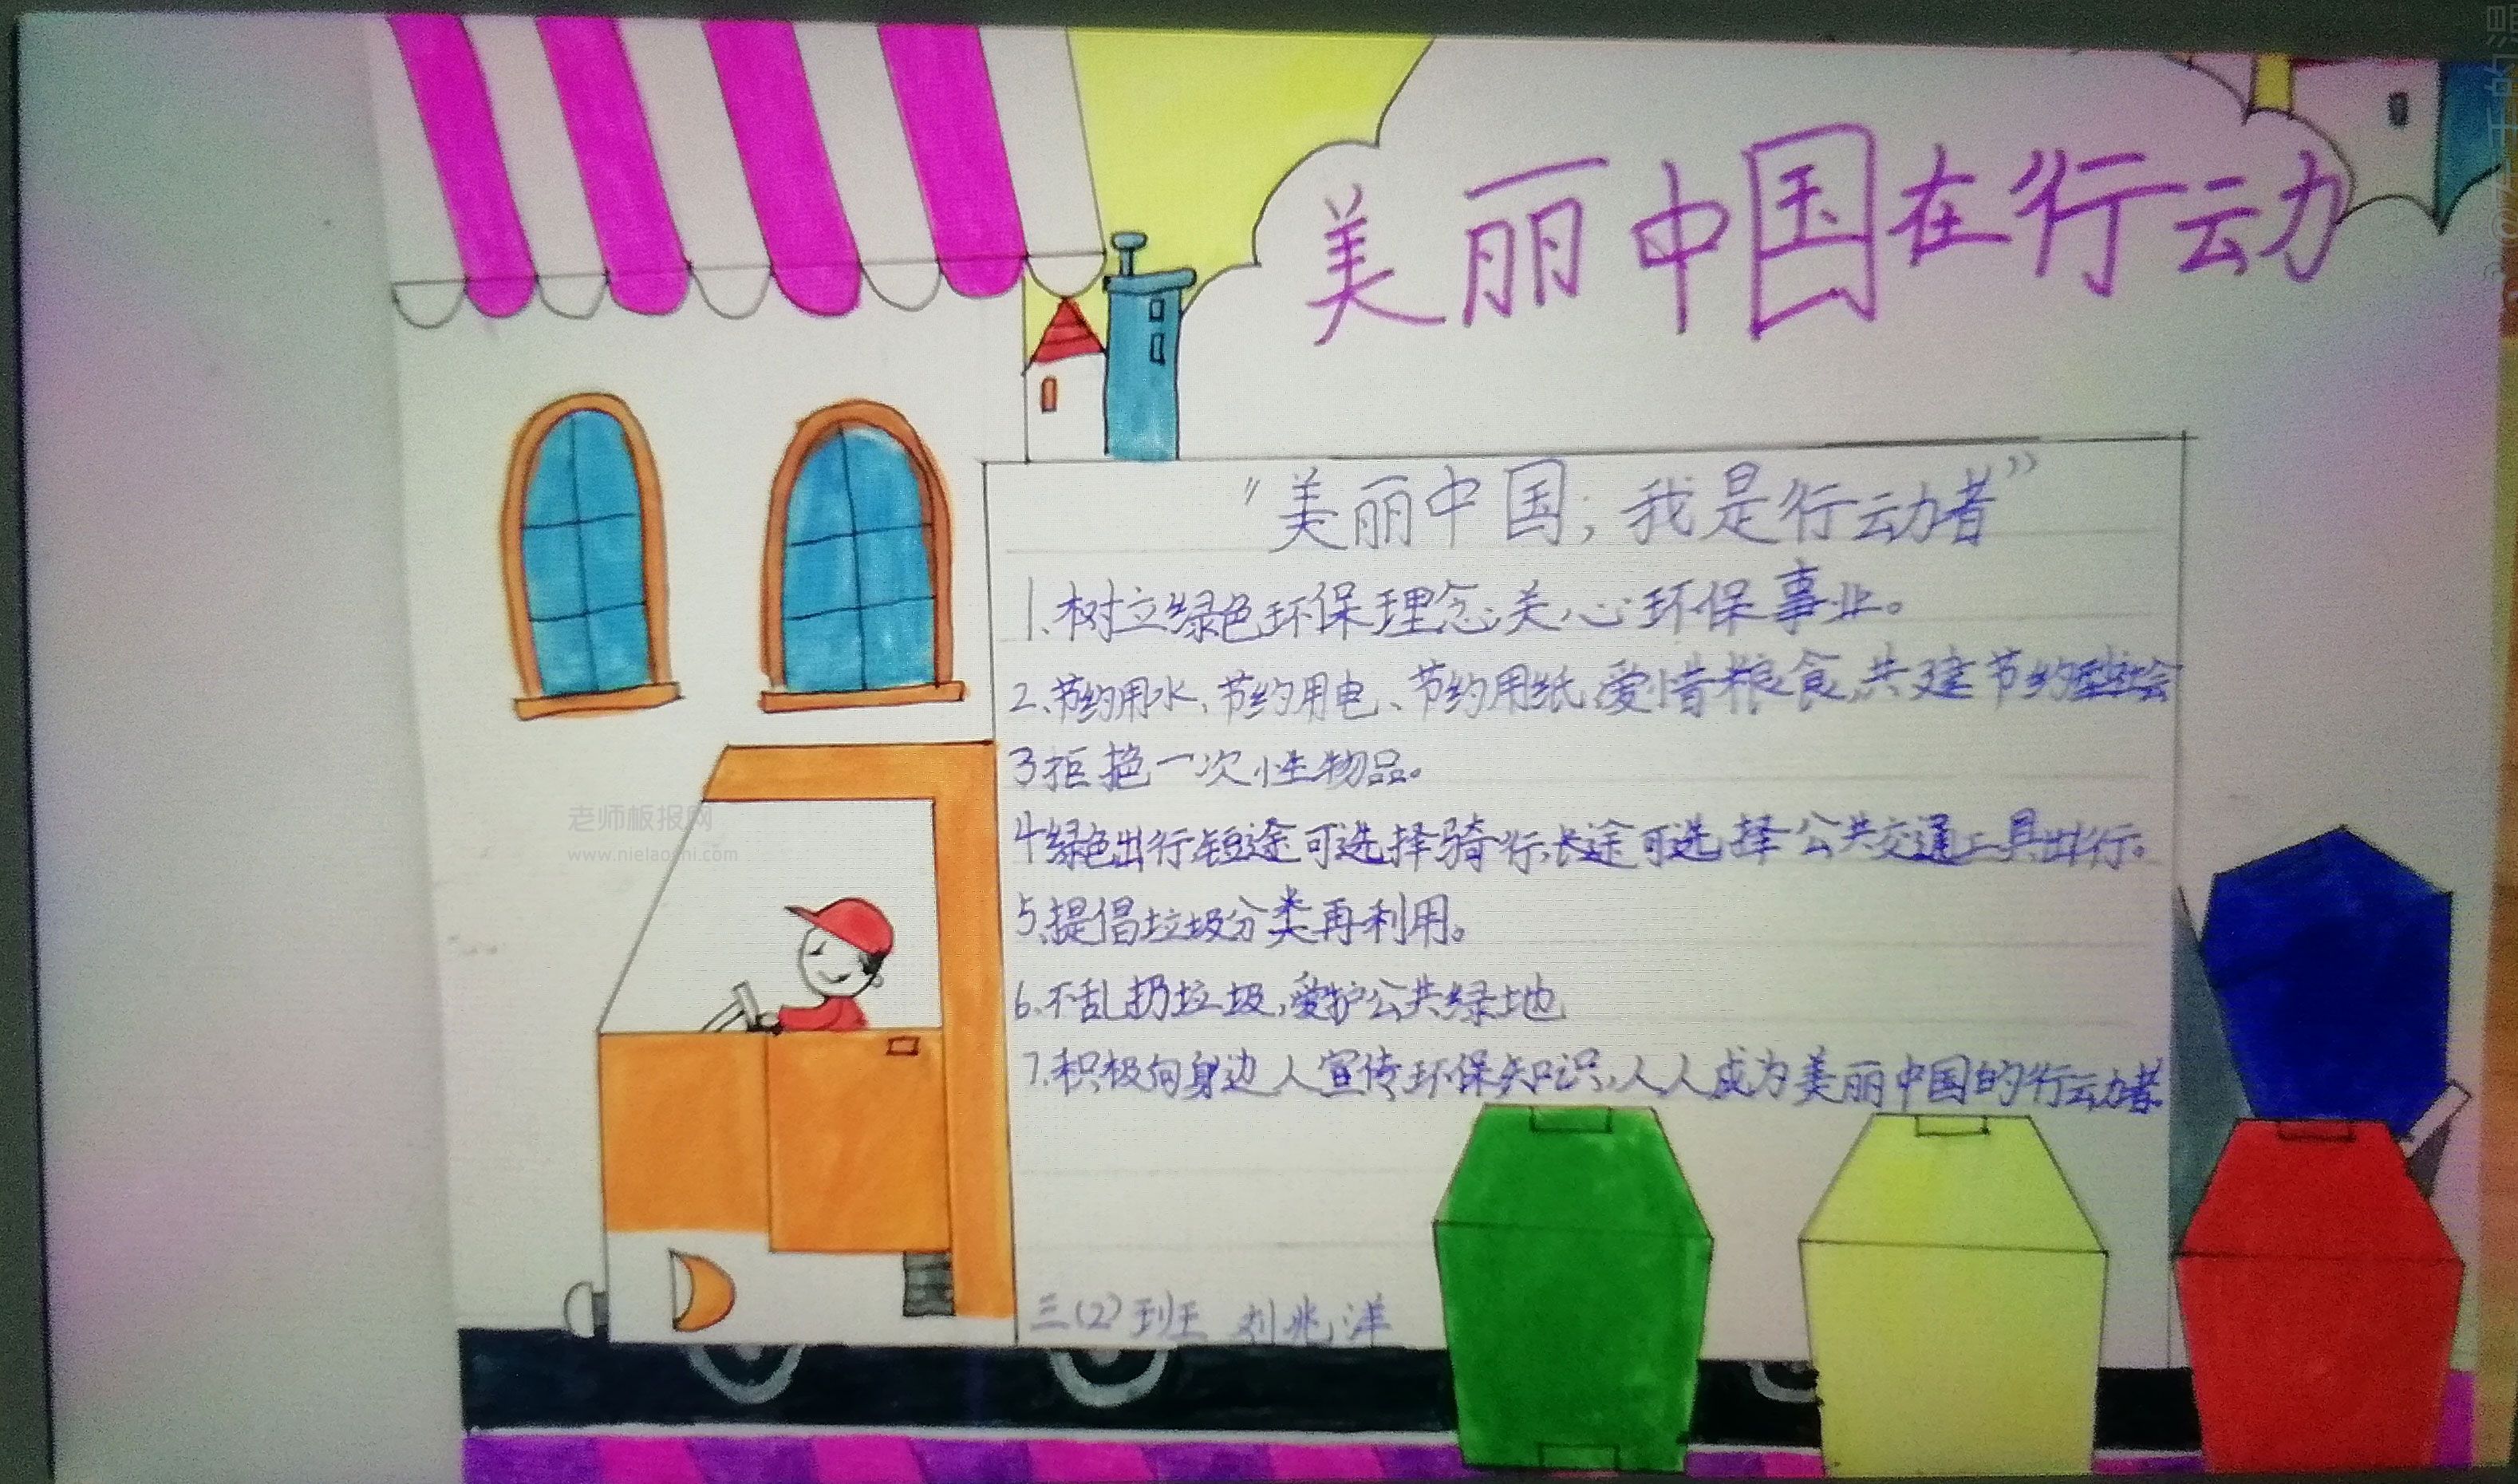 美丽中国在行动
“美丽中国,我是行动者”
1、树立绿色环保理念,关心环保事业。
2、节约用水、节约用电、节约用纸,爱惜粮食,共建节约型社会
3拒绝一次性物品。
4绿色出行短途可选择骑行,长途可选择公共交通工具出行。
5、提倡垃圾分类再利用。
6、不乱扔垃圾,爱护公共绿地
7、积极向身边人宣传环保知识,人人成为美丽中国的行动者。
三(2)班 刘兆洋
老师板报网
www.nielaoshi.com